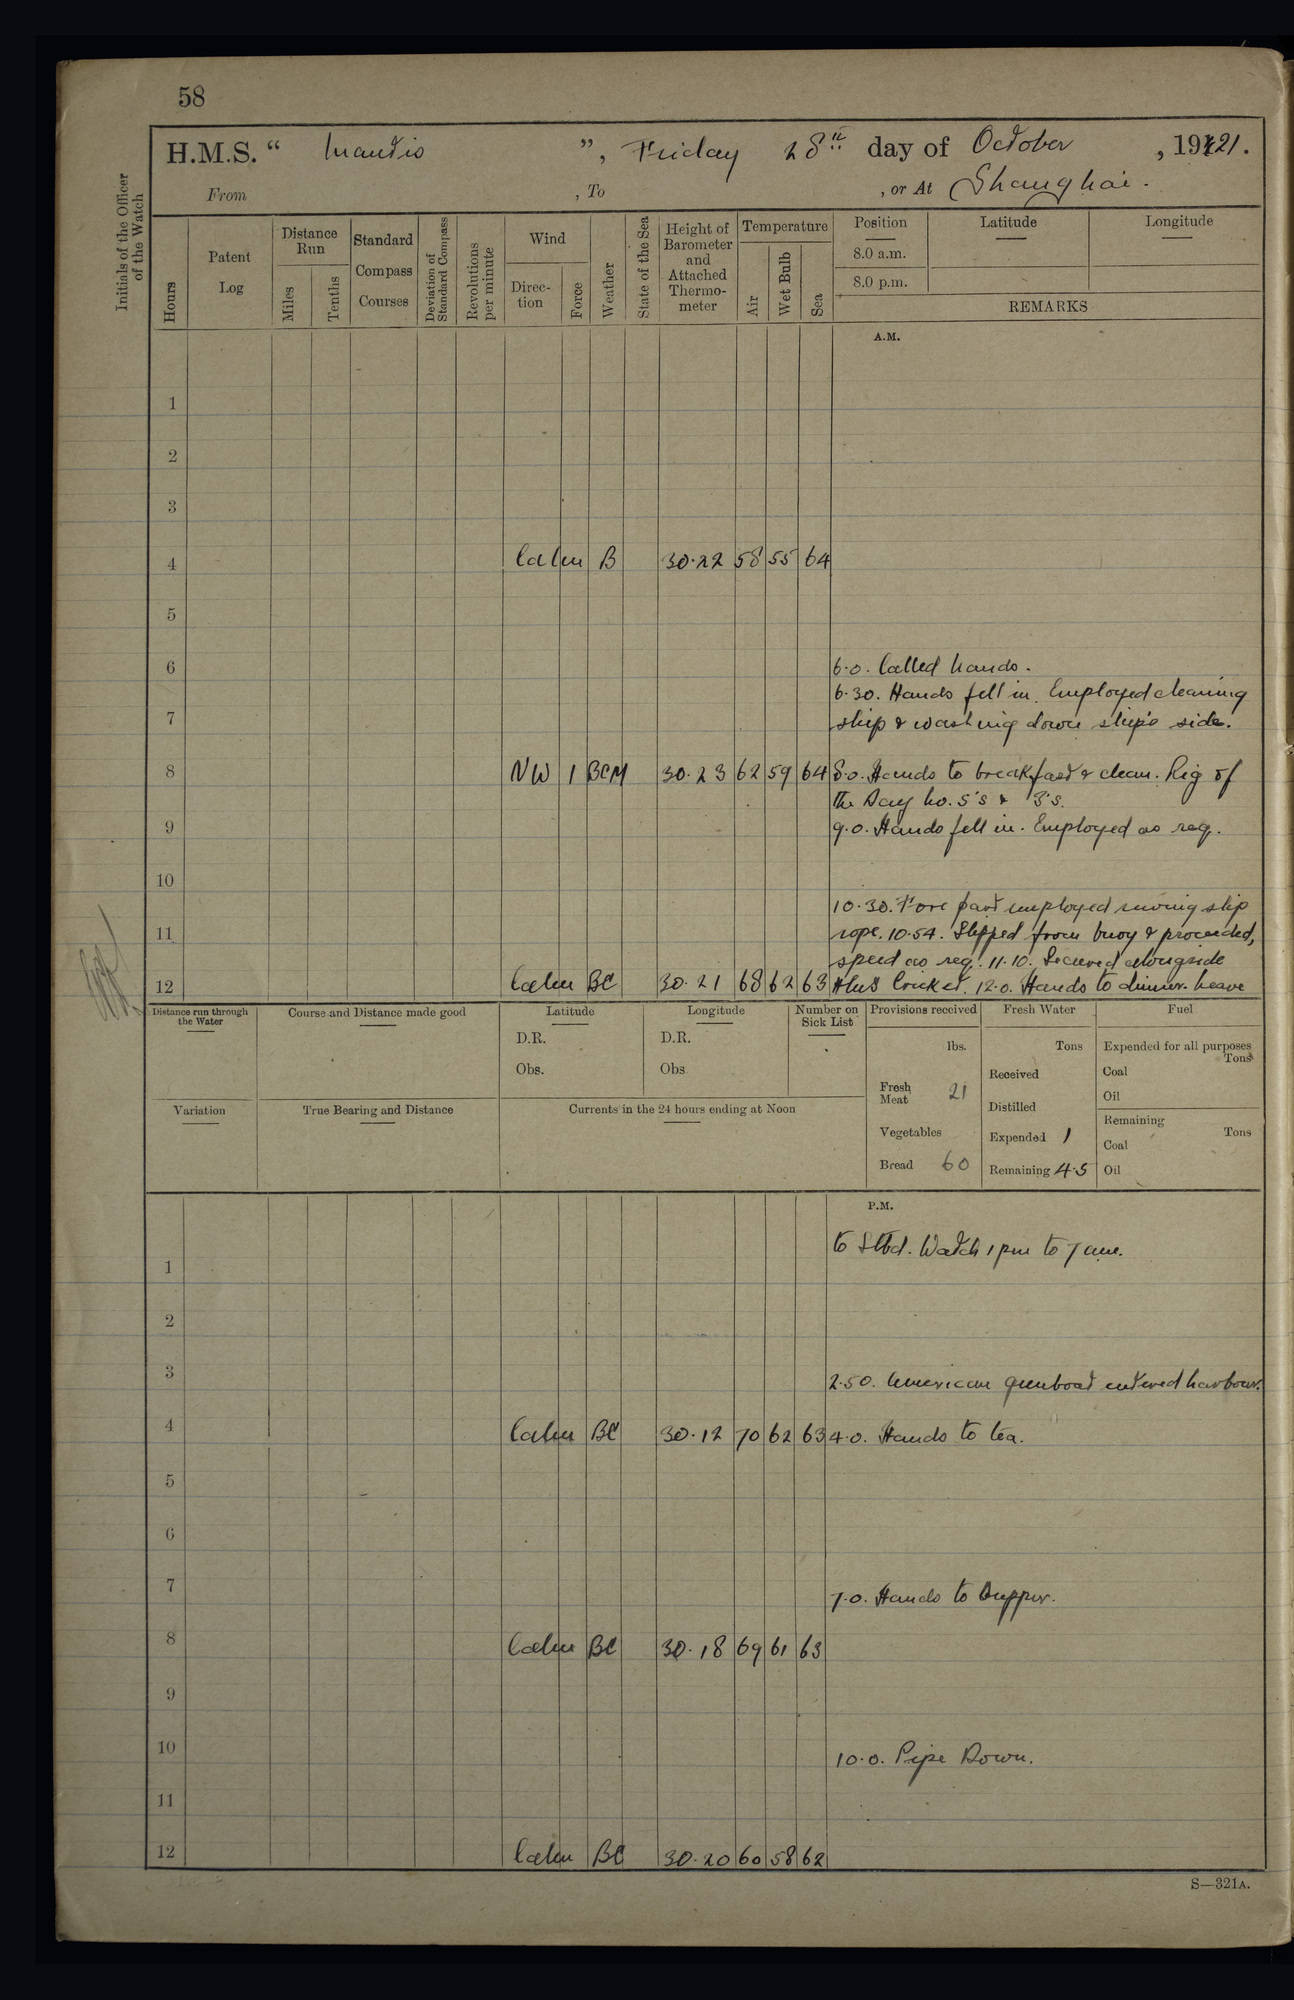 58
H.M.S. “ Mantis ”, Friday 28th day of October , 1921.
From , To , or At Shanghai.
Initials of the Officer of the Watch
Hours
Patent Log
Distance Run
Miles
Tenths
Standard Compass Courses
Deviation of Standard Compass
Revolutions per minute
Wind
Direction
Force
Weather
State of the Sea
Height of Barometer and Attached Thermometer
Temperature
Air
Wet Bulb
Sea
Position
8.0 a.m.
8.0 p.m.
Latitude
Longitude
REMARKS
A.M.
1
2
3
4 Calm B 30.22 58 55 64
5
6 6.0. Called hands.
6.30. Hands fell in. Employed cleaning
7 ship & washing down ship's side.
8 NW 1 BCM 30.23 62 59 64 8.0. Hands to breakfast & clean. Rig of
the Day No. 5's & 3's.
9 9.0. Hands fell in. Employed as req.
10
10.30. Fore part employed ship
11 rope. 10.54. Slipped from buoy & proceeded,
speed as req. 11.10. Secured alongside
12 Calm BC 30.21 68 62 63 HMS Cricket. 12.0. Hands to dinner. Leave
Distance run through the Water
Course and Distance made good
Latitude
D.R.
Obs.
Longitude
D.R.
Obs
Number on Sick List
Provisions received
lbs.
Fresh Meat 21
Vegetables
Bread 60
Fresh Water
Tons
Received
Distilled
Expended 1
Remaining 4.5
Fuel
Expended for all purposes
Tons
Coal
Oil
Remaining
Tons
Coal
Oil
Variation
True Bearing and Distance
Currents in the 24 hours ending at Noon
P.M.
to Stbd. Watch 1 pm to 7 am.
1
2
3 2.50. American gunboat entered harbour.
4 Calm BC 30.12 70 62 63 4.0. Hands to tea.
5
6
7 7.0. Hands to Supper.
8 Calm BC 30.18 69 61 63
9
10 10.0. Pipe Down.
11
12 Calm BC 30.20 60 58 62
S—321A.